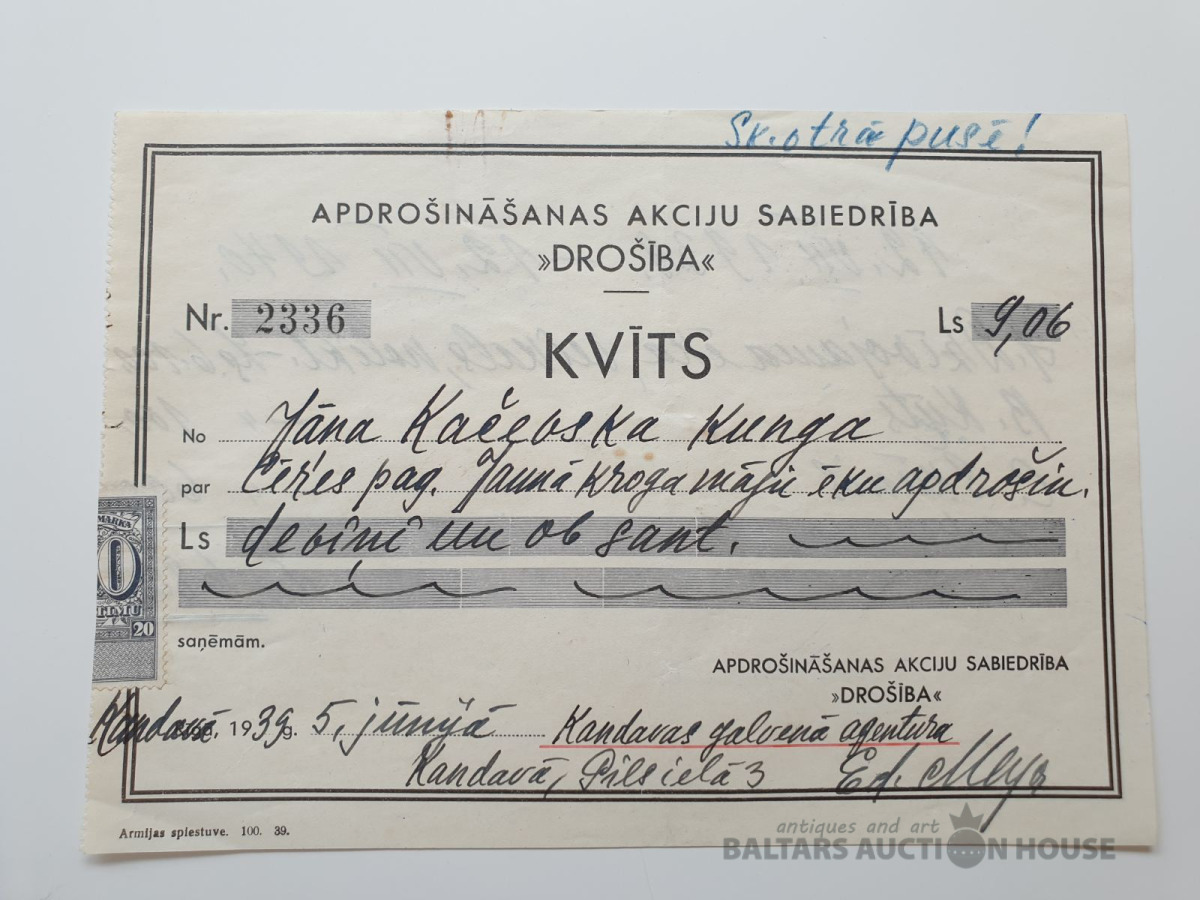 Sk. otrā pusē!
APDROŠINĀŠANAS AKCIJU SABIEDRĪBA
»DROŠĪBA«
Nr. 2336
Ls 9,06
KVĪTS
No Jāna Kačevska kunga
par Cēres pag. Jaunā kroga māju ēku apdrošin.
Ls deviņi un 06 sant.
MARKA
20
saņēmām.
APDROŠINĀŠANAS AKCIJU SABIEDRĪBA
»DROŠĪBA«
Kandavā 1939 g. 5. jūnijā
Kandavas galvenā agentura
Kandavā, Pilsielā 3
Ed.
Armijas spiestuve. 100. 39.
antiques and art
BALTARS AUCTION HOUSE